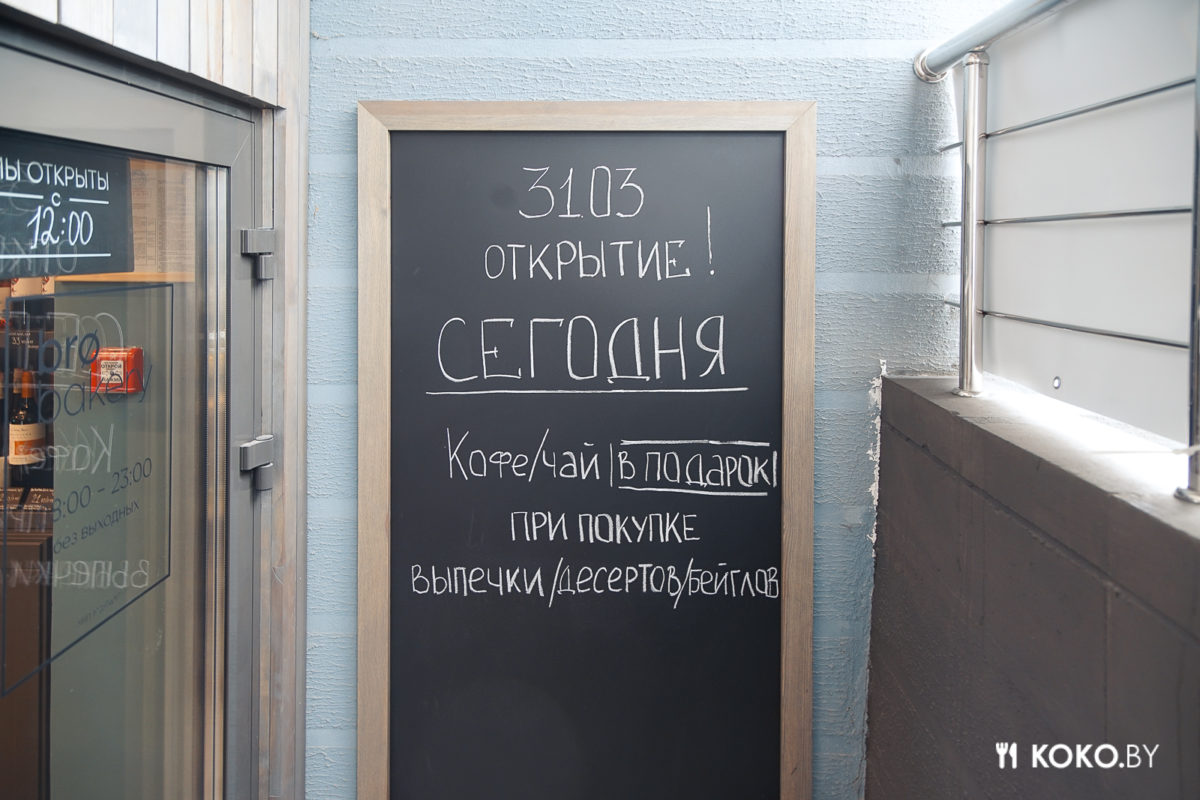 МЫ ОТКРЫТЫ
с
12:00
brø
bakery
8:00 – 23:00
без выходных
31.03
ОТКРЫТИЕ!
СЕГОДНЯ
Кофе/чай | В ПОДАРОК|
ПРИ ПОКУПКЕ
ВЫПЕЧКИ/ДЕСЕРТОВ/БЕЙГЛОВ
KOKO.BY